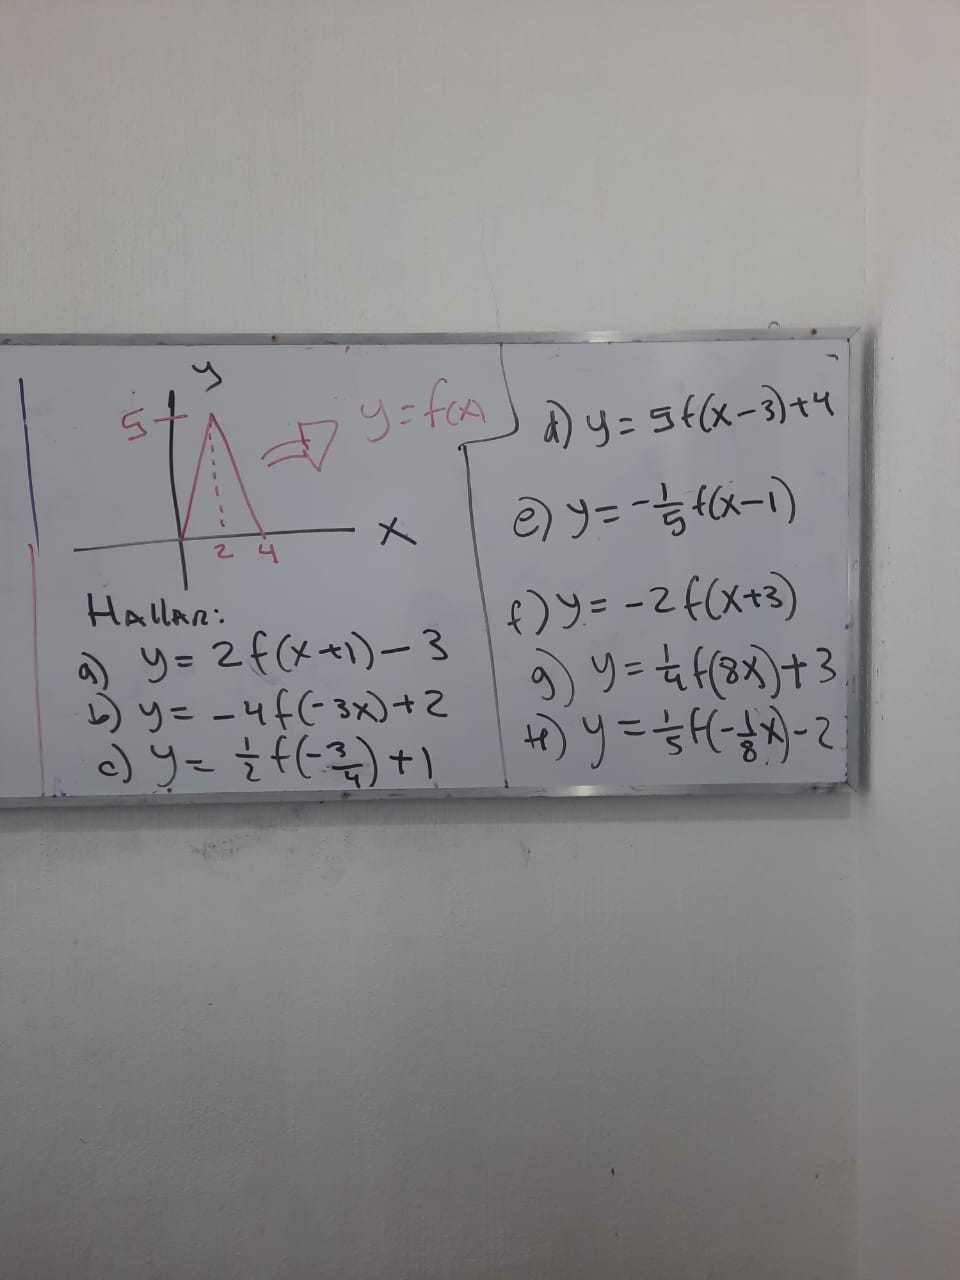 y
5
y = f(x)
x
2 4
Hallar:
a) y = 2f(x+1) - 3
b) y = -4f(-3x) + 2
c) y = 1/2 f(-3/4) + 1
d) y = 5f(x-3)+4
e) y = -1/5 f(x-1)
f) y = -2f(x+3)
g) y = 1/4 f(8x)+3
H) y = 1/5 f(-1/8 x)-2